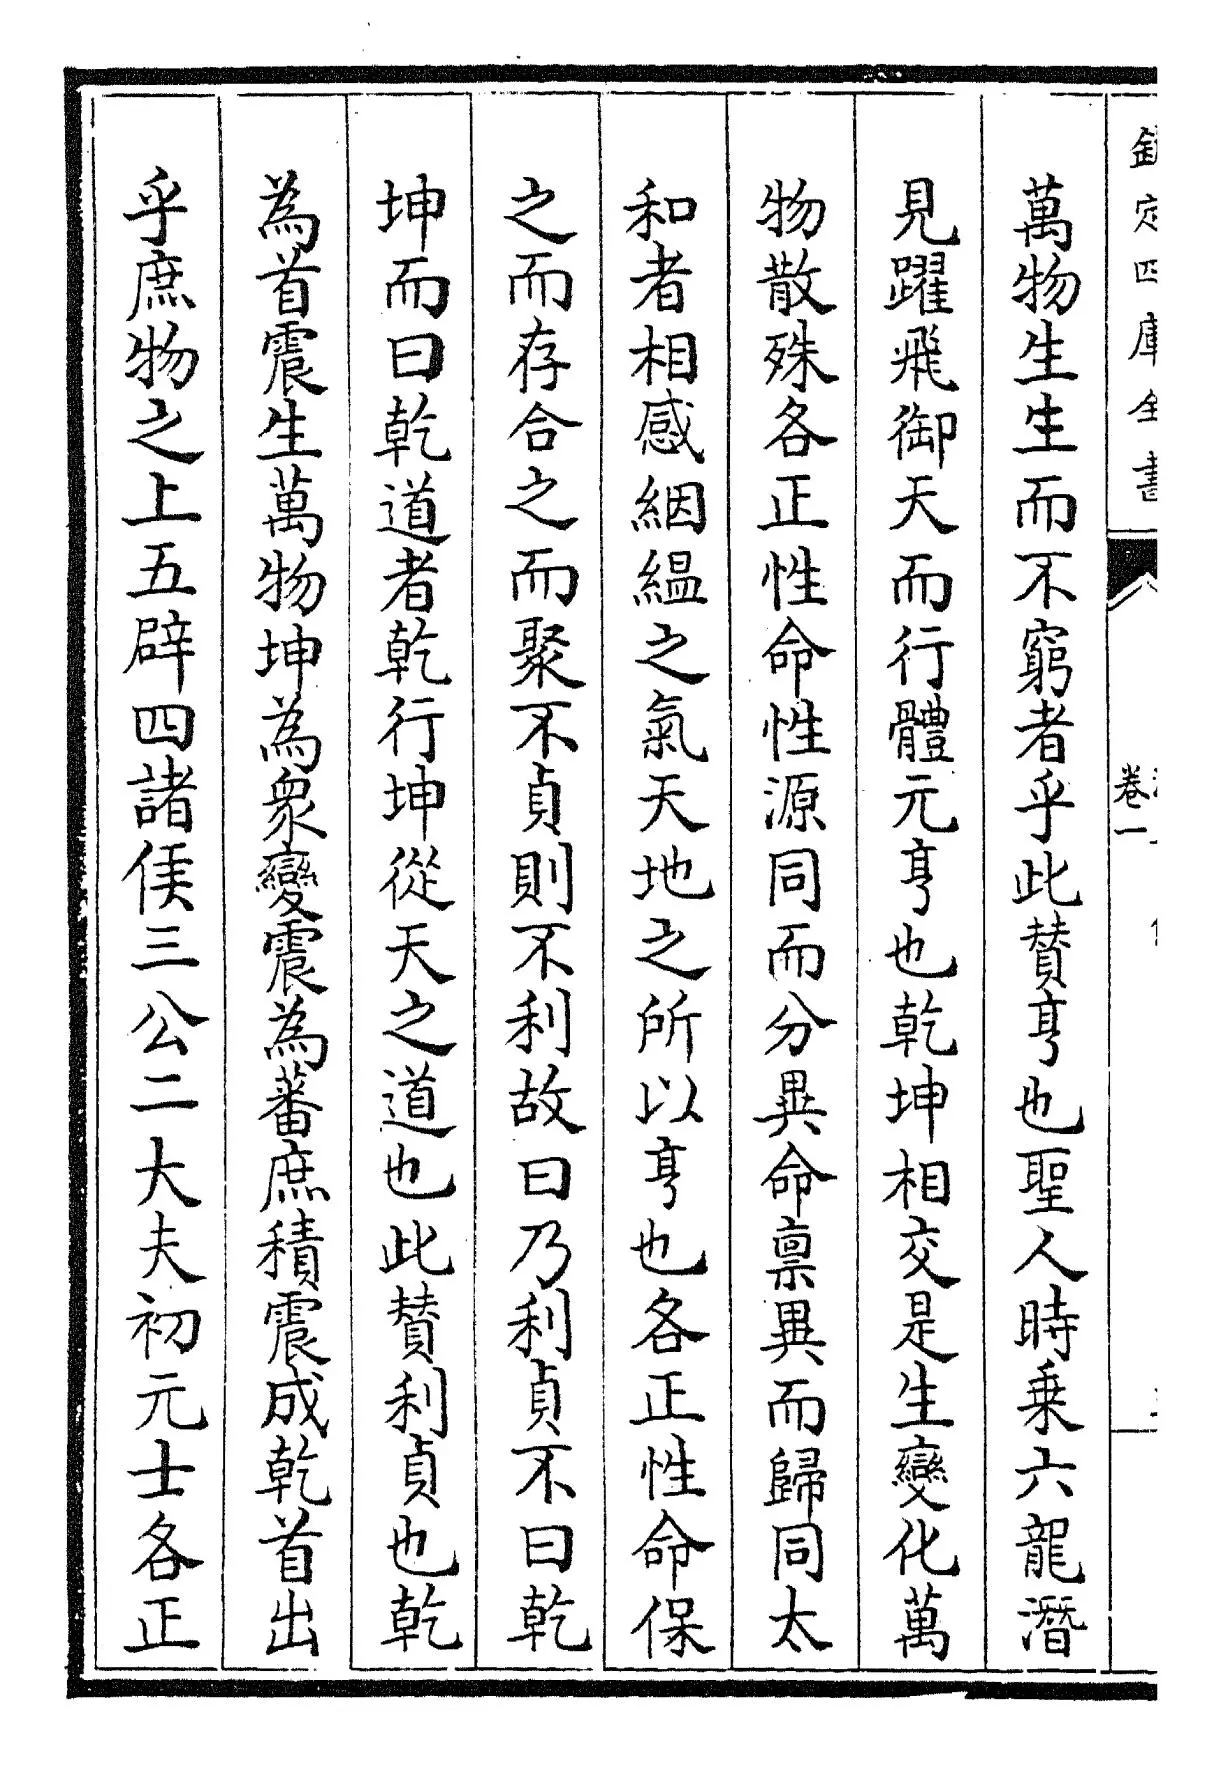 欽定四庫全書
卷一
萬物生生而不窮者乎此賛亨也聖人時乗六龍潛
見躍飛御天而行體元亨也乾坤相交是生變化萬
物散殊各正性命性源同而分異命禀異而歸同太
和者相感絪緼之氣天地之所以亨也各正性命保
之而存合之而聚不貞則不利故曰乃利貞不曰乾
坤而曰乾道者乾行坤從天之道也此賛利貞也乾
為首震生萬物坤為衆變震為蕃庶積震成乾首出
乎庶物之上五辟四諸侯三公二大夫初元士各正